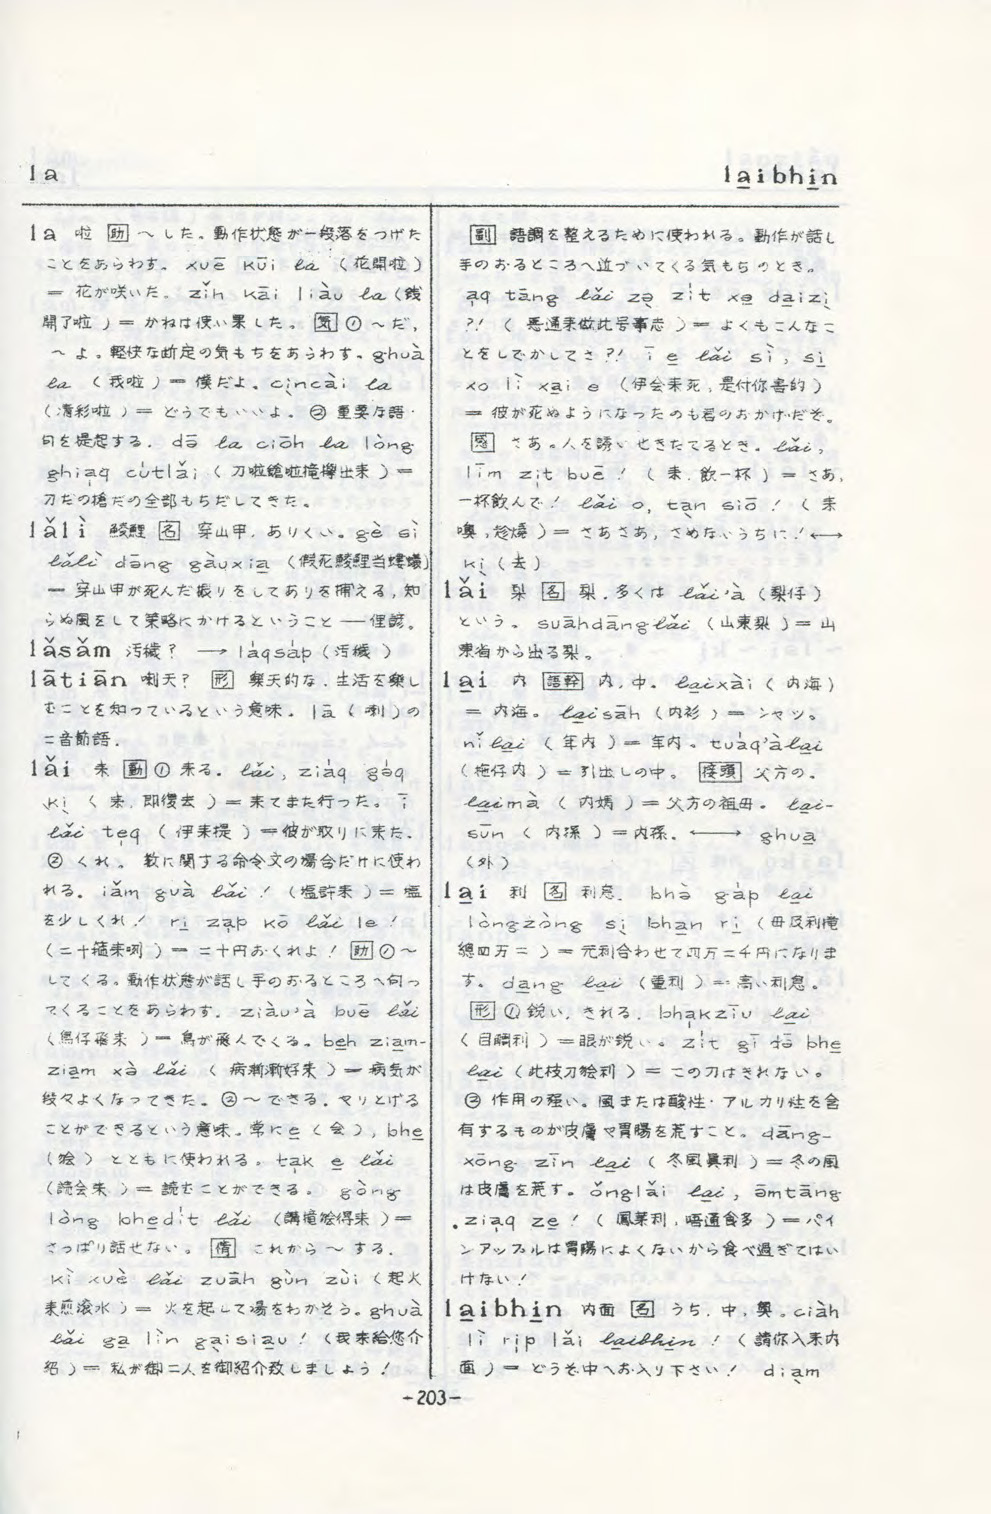 la
laibhin
la 啦 助 ~した。動作状態が一段落をつげた
ことをあらわす。xuē kūi la (花開啦)
= 花が咲いた。zǐh kāi liàu la (銭
開了啦) = かねは使い果した。気 ① ~だ,
~よ。軽快な断定の気もちをあらわす。ghuà
la (我啦) = 僕だよ。cịncài la
(清彩啦) = どうでもいいよ。② 重要な語・
句を提起する. dō la ciōh la lòng
ghiạq cùtlǎi (刀啦鎗啦攏櫸出来) =
刀だの槍だの全部もちだしてきた。
lǎlì 鯪鯉 名 穿山甲, ありくい。gè sì
lǎlì dāng gàuxia (假死鯪鯉当螻蟻)
= 穿山甲が死んだ振りをしてありを捕える, 知
らぬ風をして策略にかけるということ — 俚諺。
lǎsǎm 汚穢? → làqsàp (汚穢)
lātiān 唎天? 形 楽天的な. 生活を楽し
むことを知っているという意味. lā (唎) の
二音節語.
lǎi 来 動 ① 来る. lǎi, ziàq gàq
kị (来, 即復去) = 来てまた行った。ī
lǎi tẹq (伊来提) = 彼が取りに来た.
② くれ。数に関する命令文の場合だけに使わ
れる。iǎm guà lǎi! (塩許来) = 塩
を少しくれ! rị zạp kō lǎi le!
(二十箍来咧) = 二十円おくれよ! 助 ① ~
してくる。動作状態が話し手のおるところへ向っ
てくることをあらわす. ziàu'à buē lǎi
(鳥仔飛来) = 鳥が飛んでくる。bẹh ziam-
ziam xà lǎi (病漸漸好来) = 病気が
段々よくなってきた。② ~できる. やりとげる
ことができるという意味。常に e (会), bhe
(𣍐) とともに使われる。tạk e lǎi
(読会来) = 読むことができる。gòng
lòng bhedịt lǎi (講攏𣍐得来) =
さっぱり話せない。情 これから~する.
kì xuè lǎi zuāh gùn zùi (起火
来煎滾水) = 火を起して湯をわかそう。ghuà
lǎi ga lìn gạisiau! (我来給恁介
紹) = 私が御二人を御紹介致しましょう!
副 語調を整えるために使われる。動作が話し
手のおるところへ近づいてくる気もちのとき。
ạq tāng lǎi zə zịt xe daizị
?! (悪通来做此号事志) = よくもこんなこ
とをしでかしてさ?! ī e lǎi sì, si
xo lì xai e (伊会来死, 是付你害的)
= 彼が死ぬようになったのも君のおかげだぞ。
感 さあ。人を誘いせきたてるとき。lǎi,
līm zịt buē! (来, 飲一杯) = さあ,
一杯飲んで! lǎi o, tạn siō! (来
噢, 趁燒) = さあさあ, さめないうちに! ←→
kị (去)
lǎi 梨 名 梨. 多くは lǎi'à (梨仔)
という。suāhdānglǎi (山東梨) = 山
東省から出る梨。
lai 内 語幹 内. 中. laixài (内海)
= 内海。laisāh (内衫) = シャツ。
nǐlai (年内) = 年内。tuàq'àlai
(拖仔内) = 引出しの中。接頭 父方の.
laimà (内媽) = 父方の祖母。lai-
sūn (内孫) = 内孫. ←→ ghua
(外)
lai 利 名 利息. bhè gàp lai
lòngzòng sị bhạn rị (母及利攏
總四万二) = 元利合わせて四万二千円になりま
す。dạng lai (重利) = 高い利息。
形 ① 鋭い, きれる. bhạkzīu lai
(目睭利) = 眼が鋭い。zịt gī dō bhe
lai (此枝刀𣍐利) = この刀はきれない。
② 作用の強い。風または酸性・アルカリ性を含
有するものが皮膚や胃腸を荒すこと。dāng-
xōng zīn lai (冬風真利) = 冬の風
は皮膚を荒す。ǒnglǎi lai, əmtāng
ziạq ze! (鳳萊利, 唔通食多) = パイ
ンアップルは胃腸によくないから食べ過ぎてはい
けない!
laibhin 内面 名 うち. 中. 奥。ciàh
lì rịp lǎi laibhin! (請你入来内
面) = どうぞ中へお入り下さい! diạm
-203-